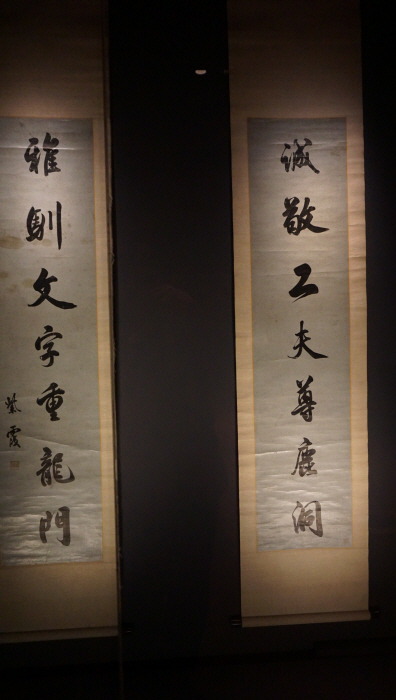 誠敬工夫尊鹿洞
雅馴文字重龍門
紫霞